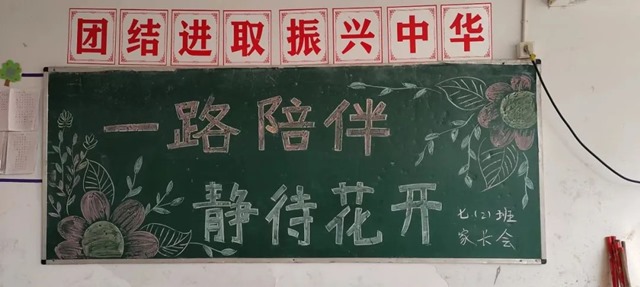 团结进取振兴中华
一路陪伴
静待花开
七(2)班
家长会